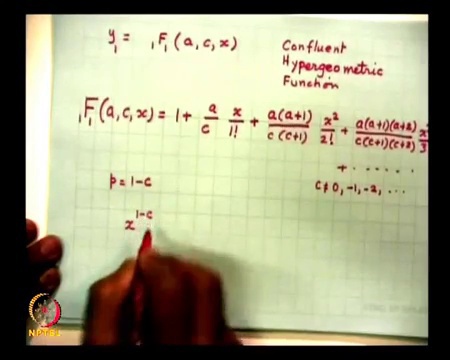 y₁ = ₁F₁(a, c, x)
Confluent
Hypergeometric
Function
₁F₁(a, c, x) = 1 + a/c x/1! + a(a+1)/c(c+1) x²/2! + a(a+1)(a+2)/c(c+1)(c+2) x³/3!
+ ......
c ≠ 0, -1, -2, ...
p = 1-c
x^(1-c)
NPTEL